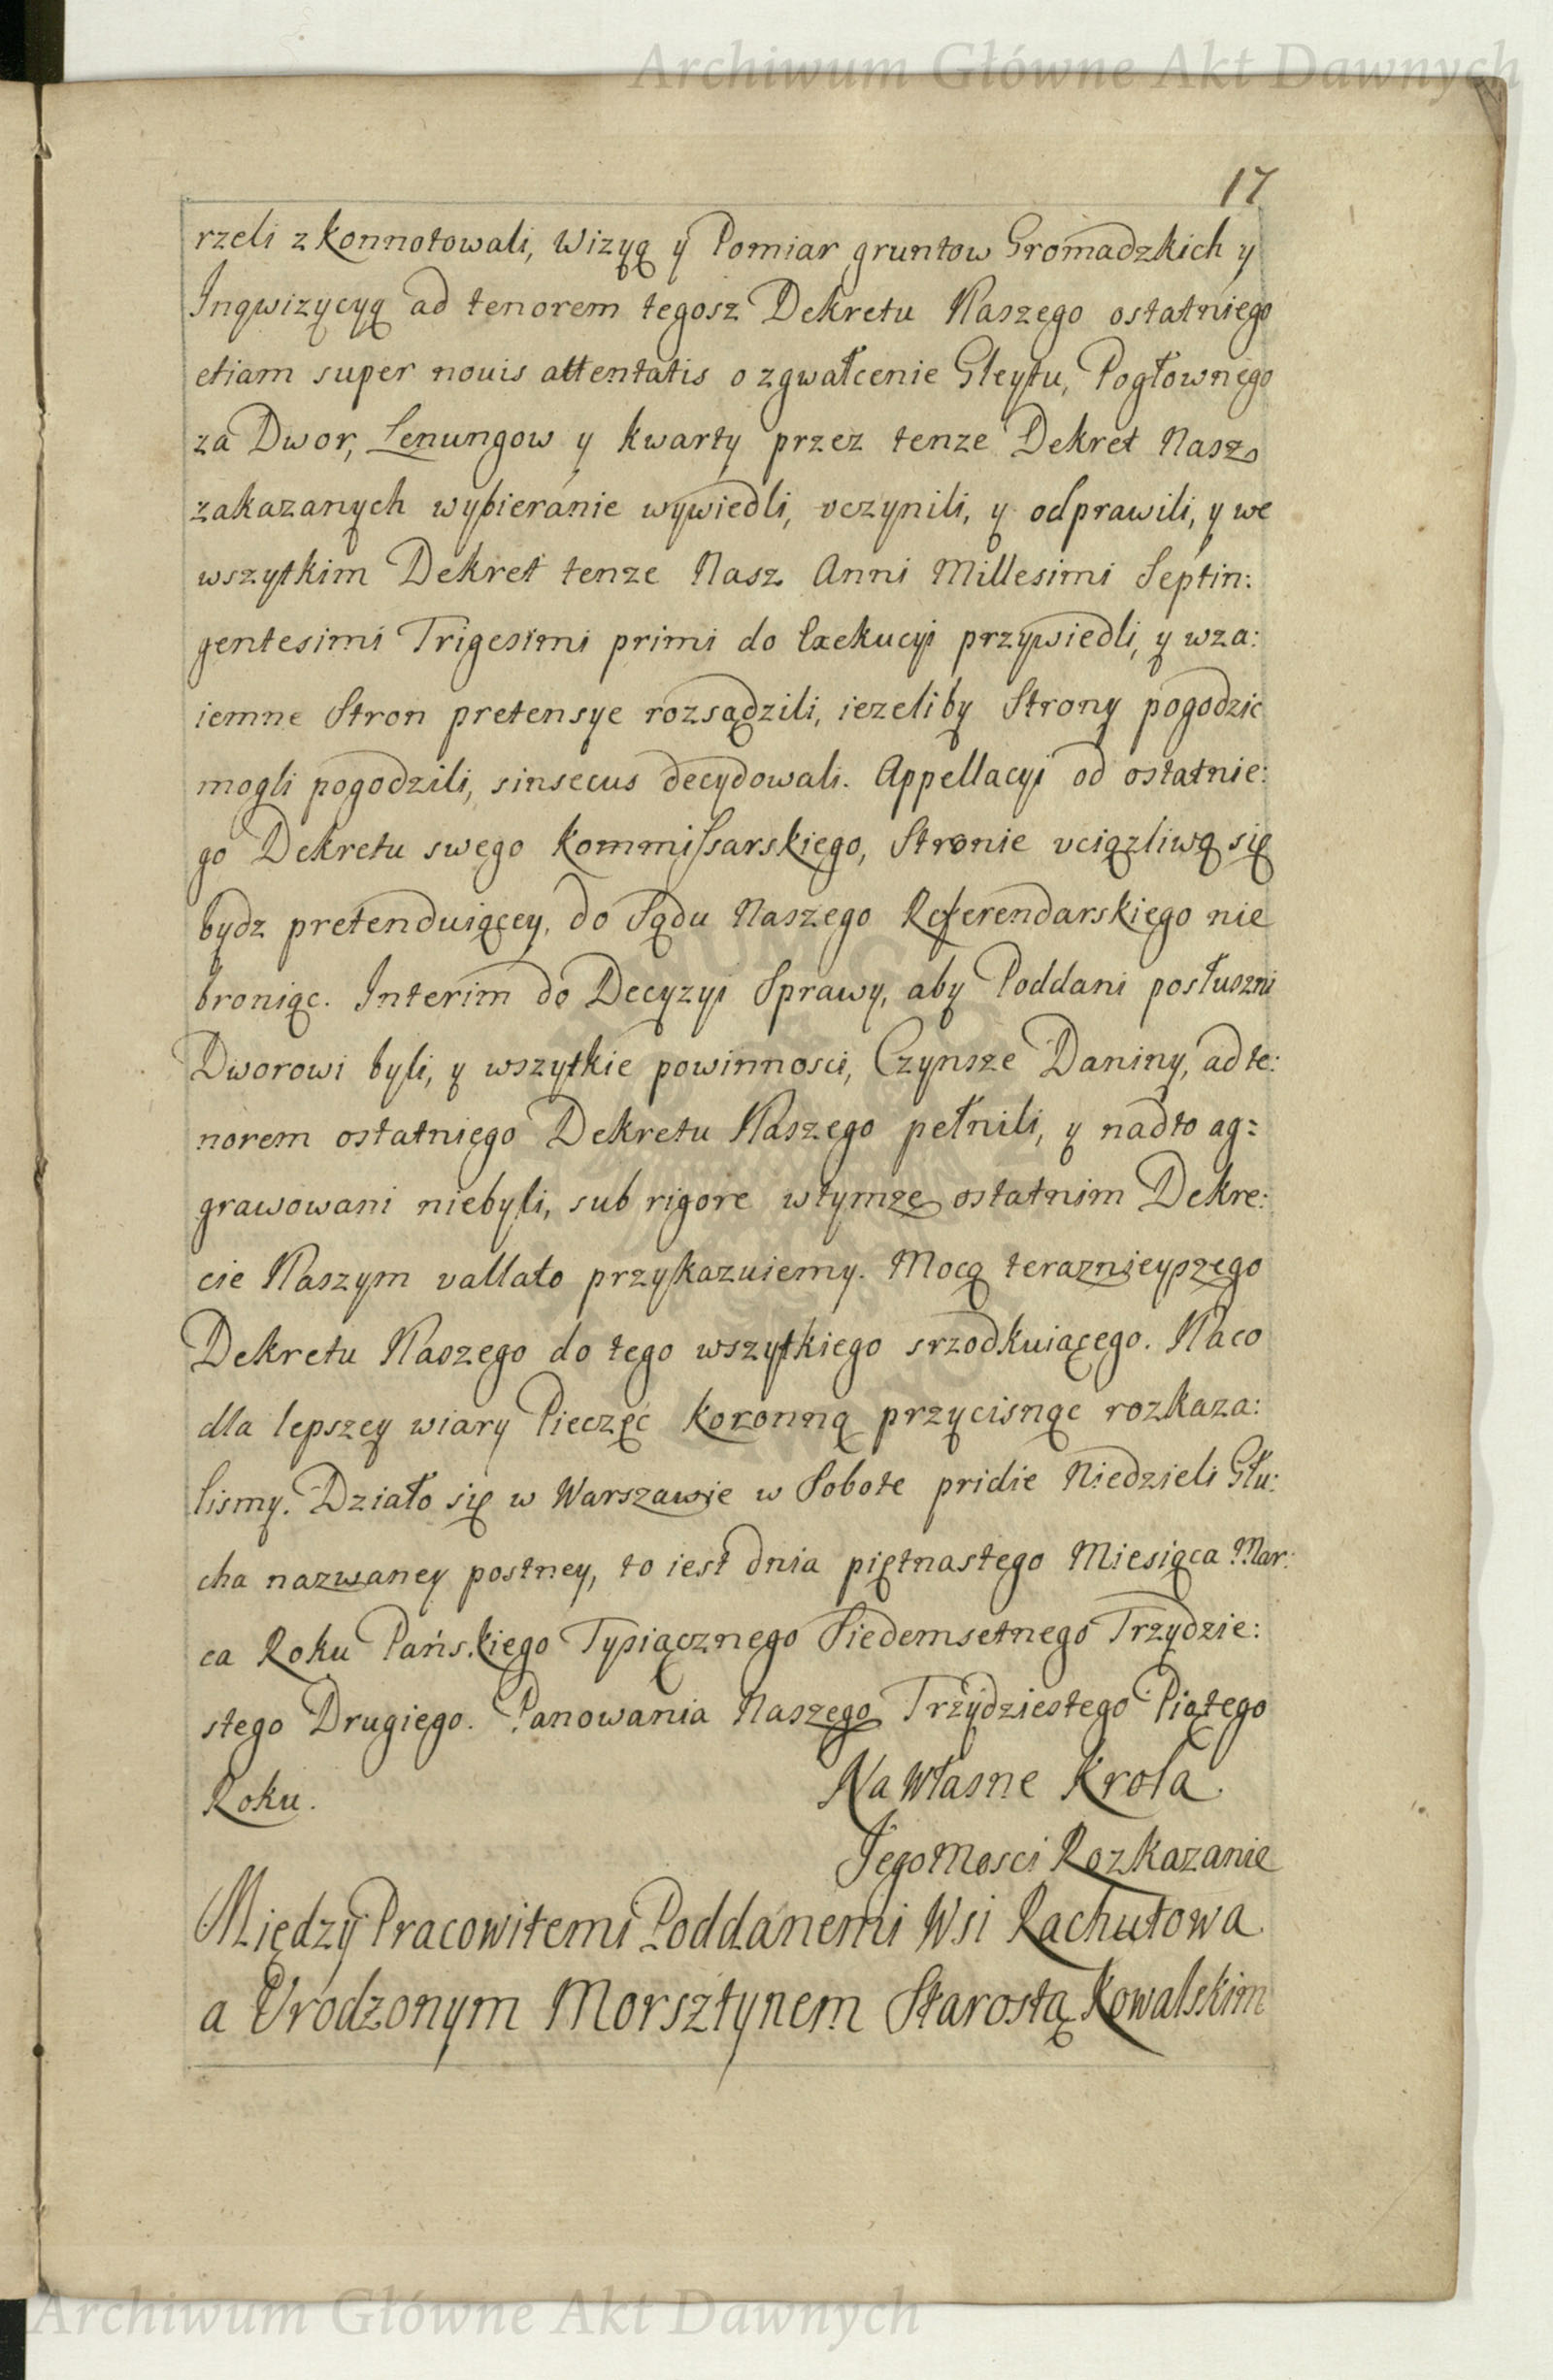 Archiwum Główne Akt Dawnych
17
rzeli zkonnotowali, Wizyą y Pomiar gruntow Gromadzkich y
Inqwizycyą ad tenorem tegosz Dekretu Naszego ostatniego
etiam super nouis attentatis o zgwałcenie Gleytu, Pogłownego
za Dwor, Lenungow y kwarty przez tenze Dekret Nasz
zakazanych wybieranie wywiedli, vczynili, y odprawili, y we
wszytkim Dekret tenze Nasz Anni Millesimi Septin:
gentesimi Trigesimi primi do Exekucyi przywiedli, y wza:
iemne Stron pretensye rozsądzili, iezeliby Strony pogodzic
mogli pogodzili, sinsecus decydowali. Appellacyi od ostatnie:
go Dekretu swego Kommissarskiego, Stronie vciązliwą się
bydz pretenduiącey, do Sądu Naszego Referendarskiego nie
broniąc. Interim do Decyzyi Sprawy, aby Poddani posłuszni
Dworowi byli, y wszytkie powinnosci, Czynsze Daniny, ad te:
norem ostatniego Dekretu Naszego pełnili, y nadto ag:
grawowani niebyli, sub rigore wtymze ostatnim Dekre:
cie Naszym vallato przykazuiemy. Mocą teraznieyszego
Dekretu Naszego do tego wszytkiego srzodkuiącego. Naco
dla lepszey wiary Pieczęć Koronną przycisnąc rozkaza:
lismy. Działo się w Warszawie w Sobote pridie Niedzieli Głu:
cha nazwaney postney, to iest dnia piętnastego Miesiąca Mar:
ca Roku Pańskiego Tysiącznego Siedemsetnego Trzydzie:
stego Drugiego. Panowania Naszego Trzydziestego Piątego
Roku. Na Własne Krola
Jego Mosci Rozkazanie
Między Pracowitemi Poddanemi Wsi Rachutowa
a Vrodzonym Morsztynem Starostą Kowalskim
Archiwum Główne Akt Dawnych